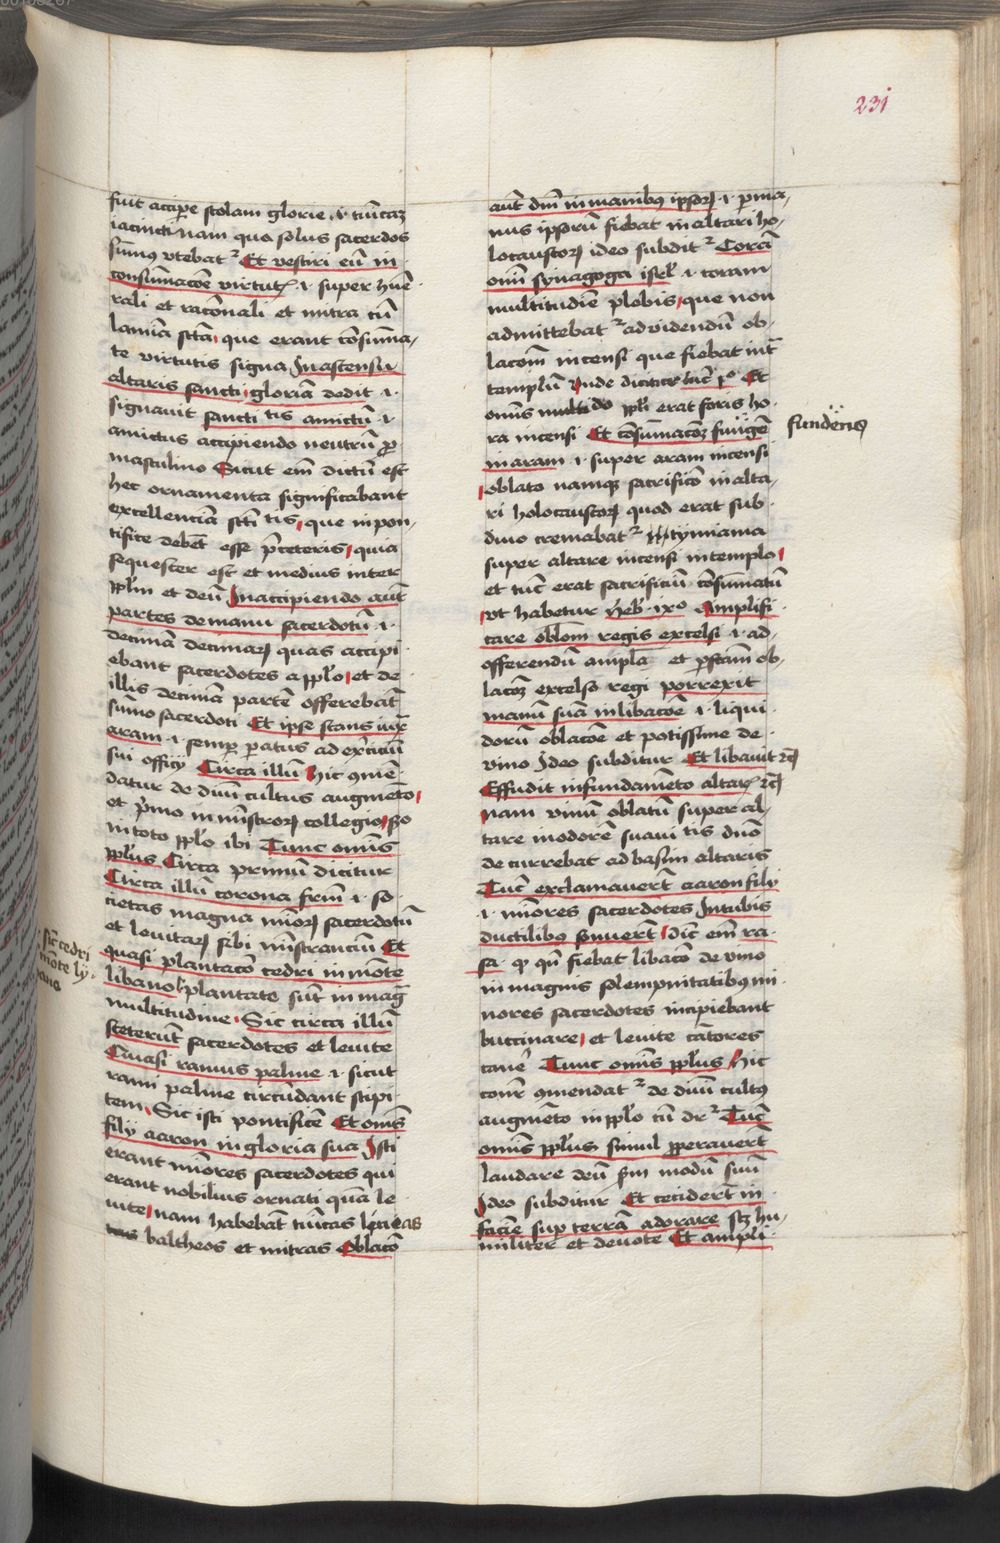 231
fuit accipere stolam glorie .i. tunicam
iacinctinam qua solus sacerdos
sūmus vtebatur Et vestiri eū in
consūmacōe virtutis .i. super hūe
rali et racōnali et mitra cū
lamina sctā que erant cōsūma
te virtutis signa In ascensu
altaris sancti gloriā dedit .i.
signauit sancti tis amictū .i.
amictus accipiendo neutrū pro
masculino Sicut em dictū est
hec ornamenta significabant
excellenciā scti tis que in pon
tifice debēt esse p̄ ceteris quia
sequester est et medius inter
pplm et deū In accipiendo aūt
partes de manu sacerdotū .i.
decimā decimarꝫ quas accipi
ebant sacerdotes a pplo et de
illis decimā partē offerebāt
sūmo sacerdoti Et ipse stans iuxᵃ
aram .i. semper paratus ad exᵉcuciū
sui officij Circa illū Hic cōmē
datur de diui cultus augmēto
et pᵢmo in mīstrorꝫ collegio sᵒ
in toto pplo ibi Tunc omīs
pplus Circa primū dicitur
Circa illū corona frm̄ .i. so
cietas magna mīorꝫ sacerdotū
et leuitarꝫ sibi mīstranciū Et
quasi plantacō cedri in mōte
libano plantate sūt in mag
multitudine Sic circa illū
sic cedri
mōte ly
banus
steterūt sacerdotes et leuite
Quasi ramus palme .i. sicut
rami palme circūdant stipi
tem Sic isti pontificē Et omīs
filij aaron in gloria sua Isti
erant mīores sacerdotes qui
erant nobilius ornati quā le
uite nam habebāt tunicas lineas
baltheos et mitras Oblacō
aūt dm̄ in manibus ipsorꝫ .i. per ma
nus ipsorū fiebat in altari ho
locaustorꝫ ideo subditur Corā
omi synagoga isrl̄ .i. coram
multitudīe plebis que non
admittebatur ad videndū ob
lacōm incensi que fiebat intᵃ
templū Inde dicitur luc pᵒ Et
omīs multi do ppli erat foris ho
ra incensi Et cōsūmacōꝫ fungēs
fundens
in aram .i. super aram incensi
oblato namꝫ sacrificō in alta
ri holocaustorꝫ quod erat sub
diuo cremabatur thymiama
super altare incensi in templo
et tūc erat sacrificiū cōsūmatū
vt habetur heb ixᵒ Amplifi
care oblōm regis excelsi .i. ad
offerendū amplā et pfctam ob
lacōꝫ excelso regi porrexit
manū suā in libacōe .i. liqui
dorū oblacōe et potissime de
vino Ideo subditur Et libauit ⁊c̄
Effudit in fundamēto altaris ⁊c̄
nam vinū oblatū super al
tare in odorē suaui tis diuō
decurrebat ad basim altaris
Tūc exclamauerūt aaron filij
.i. mīores sacerdotes In tubis
ductilibꝰ sonuerūt dic em ra
sa ꝙ qn̄ fiebat libacō de vino
in magnis solempnitatibꝰ mi
nores sacerdotes incipiebant
buccinare et leuite cātores
canē Tunc omīs pplus Hic
cōmendatur de diui cultꝰ
augmēto in pplo cū drᵗ Tūc
omīs pplus simul properauerūt
laudare deū sm̄ modū suū
Ideo subditur Et ceciderūt in
faciē sup terrā adorare scꝫ hu
militer et deuote Et ampli